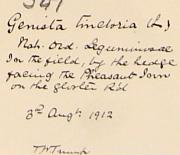 547
Genista tinctoria (L)
Nat. Ord. Leguminosae
In the field, by the hedge
facing the Pheasant Inn
on the gloster Rd
3rd Augt. 1912